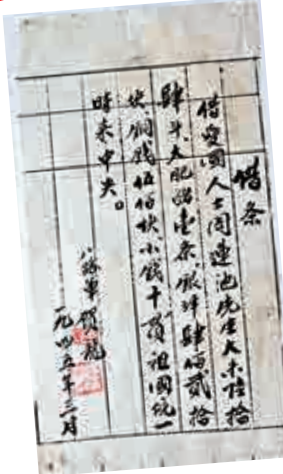 借条
借爱国人士闫连池先生大米陆拾
肆斗大肥猪壹条，银洋肆佰贰拾
块铜钱伍佰块小钱十贯祖国统一
时来中央。
八路军贺龙
一九四五年三月